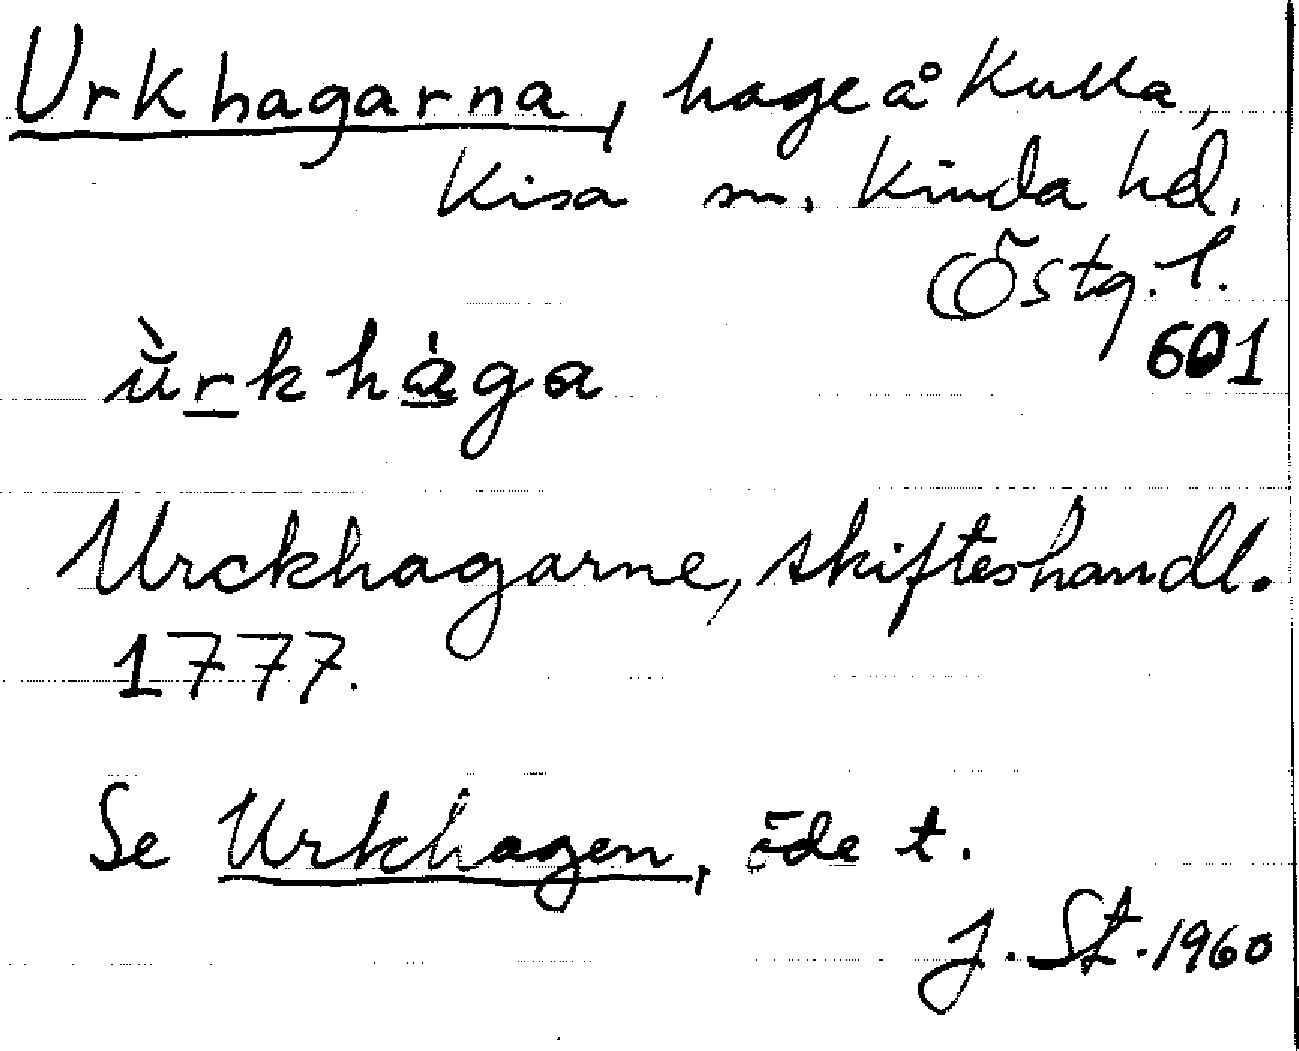 Urkhagarna, hage å Kulla,
Kisa sn. Kinda hd,
Östg. l.
601
ùrkhàga
Urckhagarne, skifteshandl.
1777.
Se Urkhagen, öde t.
J. St. 1960